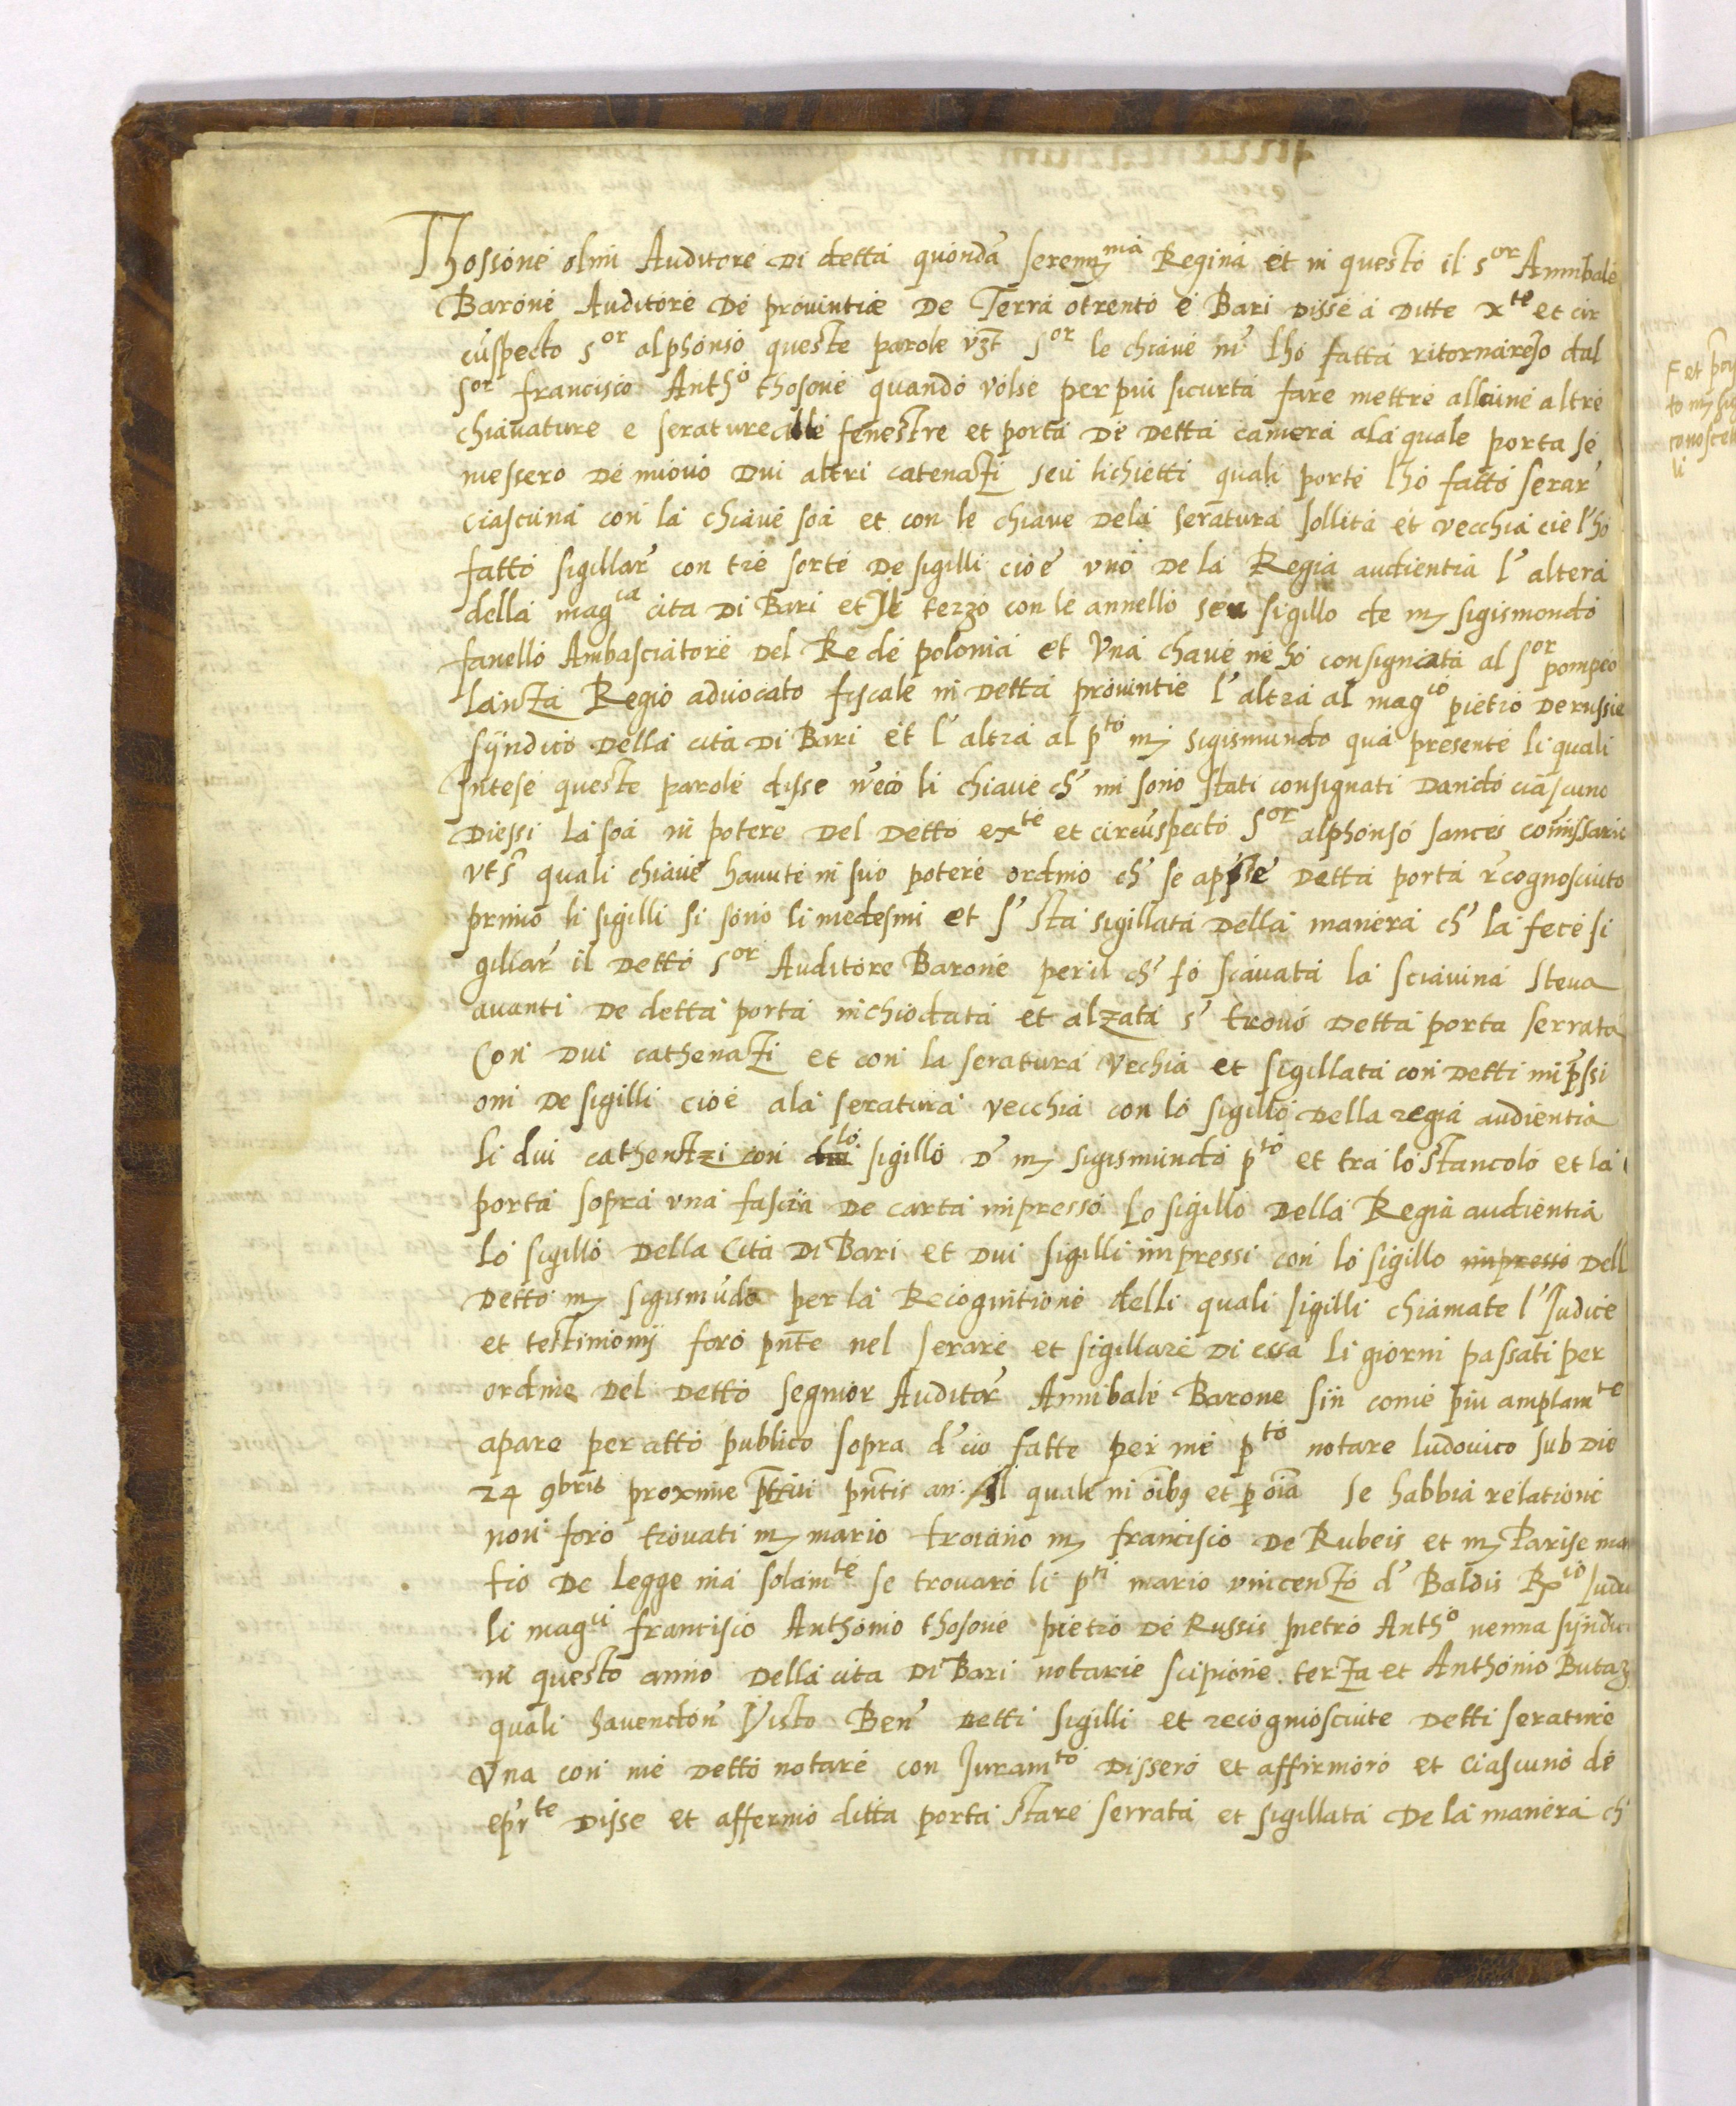 Thosone olim Auditore di detta quondã serenis^ma Regina et in questo il s^or Annibale
Barone Auditore de provintiæ de Terra otrento e Bari disse a ditte x^te et cir
cũspecto s^or alphonso queste parole vz̃t s^or le chiave lhó fatta ritornare dal
s^or francisco Anth^o thosone quando volse per piu sicurta fare mettre alcune altre
chiavature e serature alle fenestre et porta de detta camera ala quale porta se
messero de niovo dui altri catenaczi seu lichietti quali porte lho fatto serar'
ciascuna con la chiave soa et con le chiave dela seratura sollita et vecchia e l'ho
fatto sigillar' con tre sorte de sigilli cioe uno de la Regia audientia l'altera
della mag^ca cita di Bari et Il terzo con le annello seu sigillo de m_s sigismondo
fanello Ambasciatore del Re de polonia et Una chave ne ho consignata al s^or pompeo
lanza Regio advocato fiscale in detta provintie l'altra al mag^co pietro de russis
sÿndico della cita di Bari et l'altra al p^to m_s sigismundo qua presente li quali
Intese queste parole disse li chiave ch' mi sono stati consignati dando ciascuno
diessi la soa in potere del detto ex^te et circũspecto s^or alphonso sances com̃issario
ut s̃ quali chiave havute in suo potere ordino ch' se detta porta r'cognosciuto
primo li sigilli si sono li medesmi et s' sta sigillata della manera ch' la fece si
gillar' il detto s^or Auditore Barone per il ch' fo scavata la sciavina steva
avanti de detta porta inchiodata et alzata s' trovó detta porta serrata
Con dui cathenaczi et con la seratura vechia et sigillata con detti imp̃ssi
oni de sigilli cioe ala seratura vecchia con lo sigillo della regia audientia
li dui cathenaczi con lo sigillo d' m_s sigismundo p^to et tra lo stancolo et la
porta sopra una fascia de carta impresso Lo sigillo della Regia audientia
Lo sigillo della Cita di Bari et dui sigilli impressi con lo sigillo impresso dell
detto m_s sigismũdo per la Recognitione delli quali sigilli chiamate l'Judice
et testimonij foro pñte nel serare et sigillare di essa li giorni passati per
ordine del detto segnior Auditor' Annibale Barone sin come piu amplam^te
apare per atto publico sopra d' cio fatte per me p^to notare ludovico sub die
24 9bris proxime pñtis an: Il quale in õibus et p õia se habbia relatione
non foro trovati m_s mario troiano m_s francisco de Rubeis et m_s Parise
tio de legge ma solam^te se trovaro li p^ti mario vincenzo d' Baldis
li mag^ci francisco Anthonio thosone pietro de Russis pietro Anth^o nenna sÿndici
in questo anno della cita di Bari notarie scipione terza et Anthonio
quali havendon' Visto Ben' detti sigilli et recogniosciute detti serature
Una con me detto notare con Juram^to dissero et affirmoro et ciascuno de
disse et affermo ditta porta stare serrata et sigillata de la manera ch'